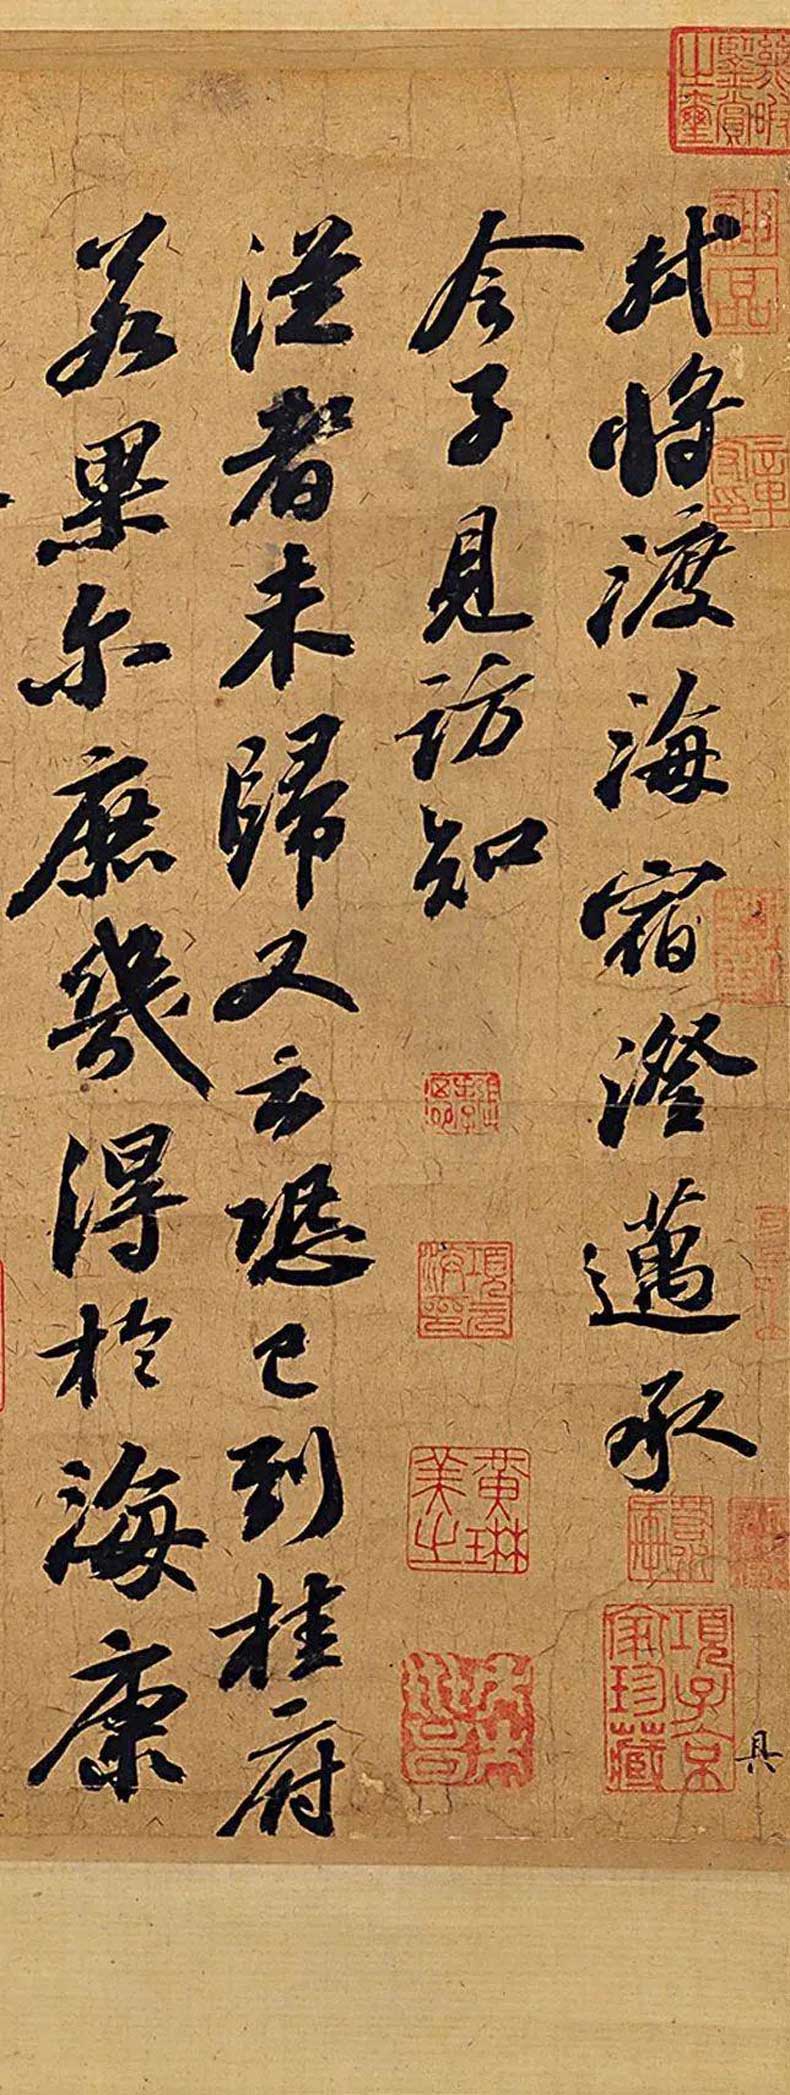 軾將渡海宿澄邁承
令子見訪知
從者未歸又云恐已到桂府
若果尔庶幾得於海康
具
項子京家珍藏
黃琳美之
項元汴印
神品